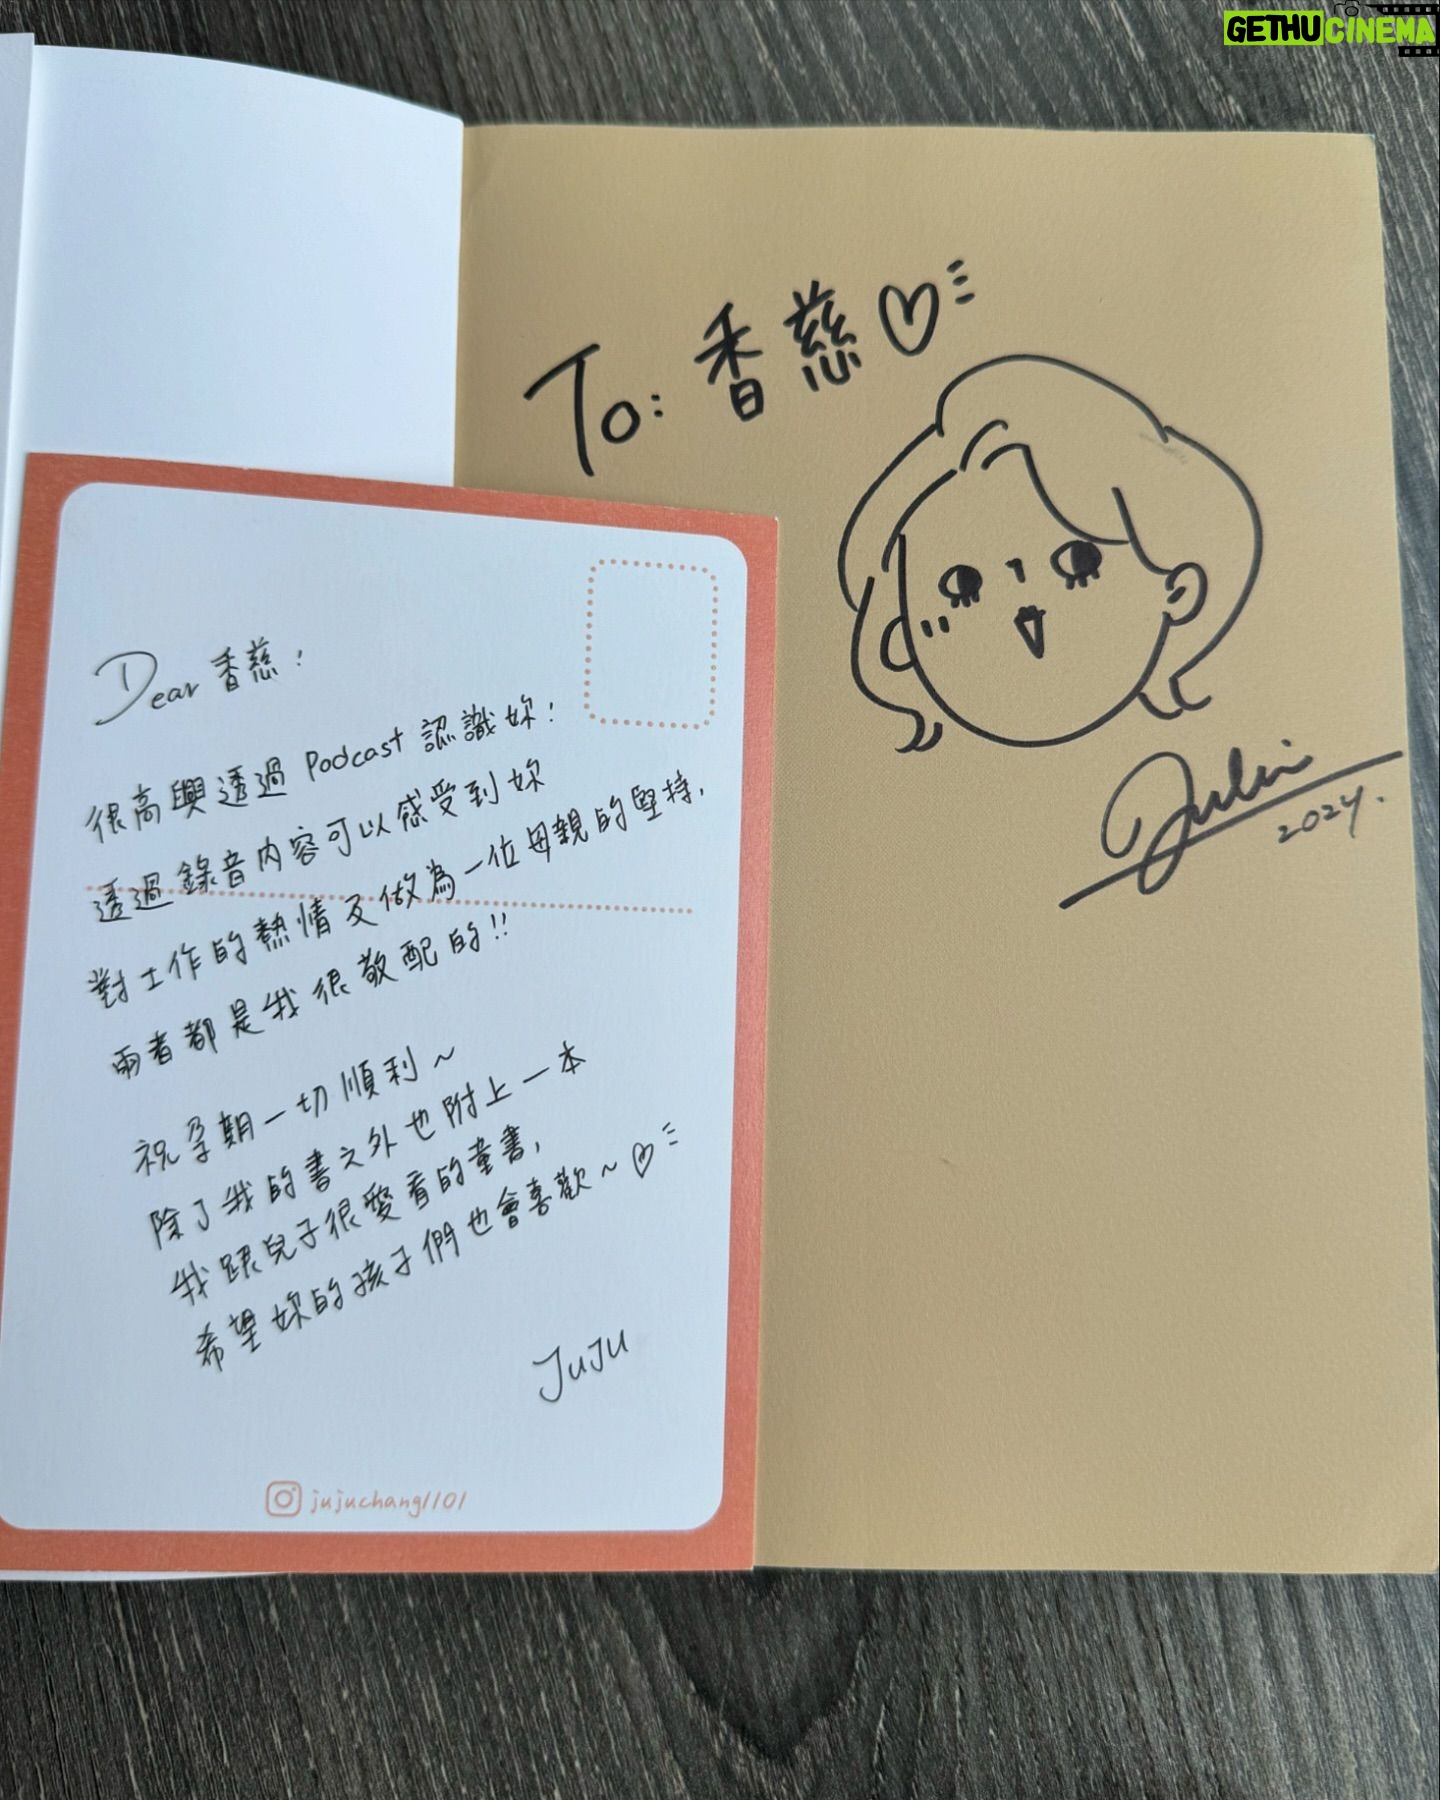 GETHU CINEMA
To: 香慈
Dear 香慈:
很高興透過 Podcast 認識妳!
透過錄音內容可以感受到妳
對工作的熱情及做為一位母親的堅持,
兩者都是我很敬配的!!
祝孕期一切順利~
除了我的書之外也附上一本
我跟兒子很愛看的童書,
希望妳的孩子們也會喜歡~
JUJU
jujuchang1101
2024.